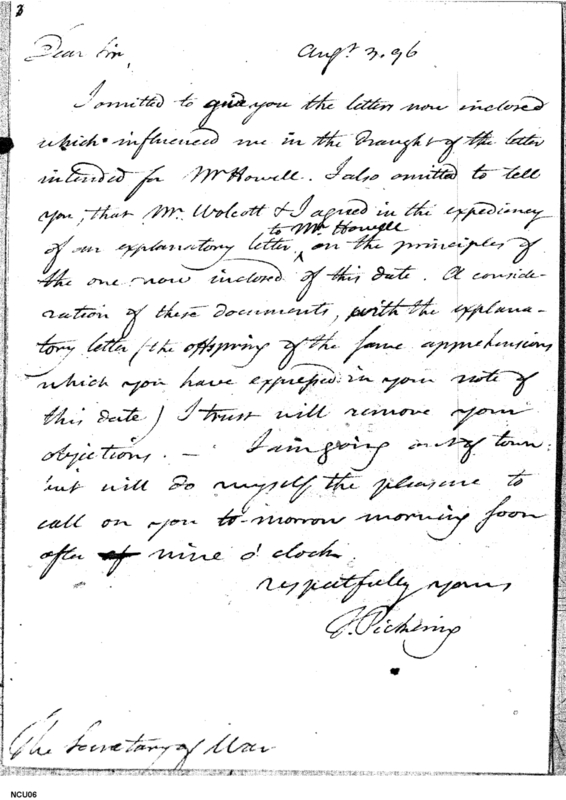 3
Dear Sir, Augt. 3. 96
I omitted to give you the letters now inclosed
which influenced me in the draught of the letter
intended for Mr Howell. I also omitted to tell
you, that Mr. Wolcott & I agreed in the expediency
to Mr. Howell
of an explanatory letter, ^ on the principles of
the one now inclosed of this date. A conside-
ration of these documents, with the explana-
tory letter (the offspring of the same apprehensions
which you have expressed in your note of
this date) I trust will remove your
objections. — I am going out of town:
but will do myself the pleasure to
call on you to-morrow morning soon
after nine o'clock.
respectfully yours
T. Pickering
The Secretary of War
NCU06